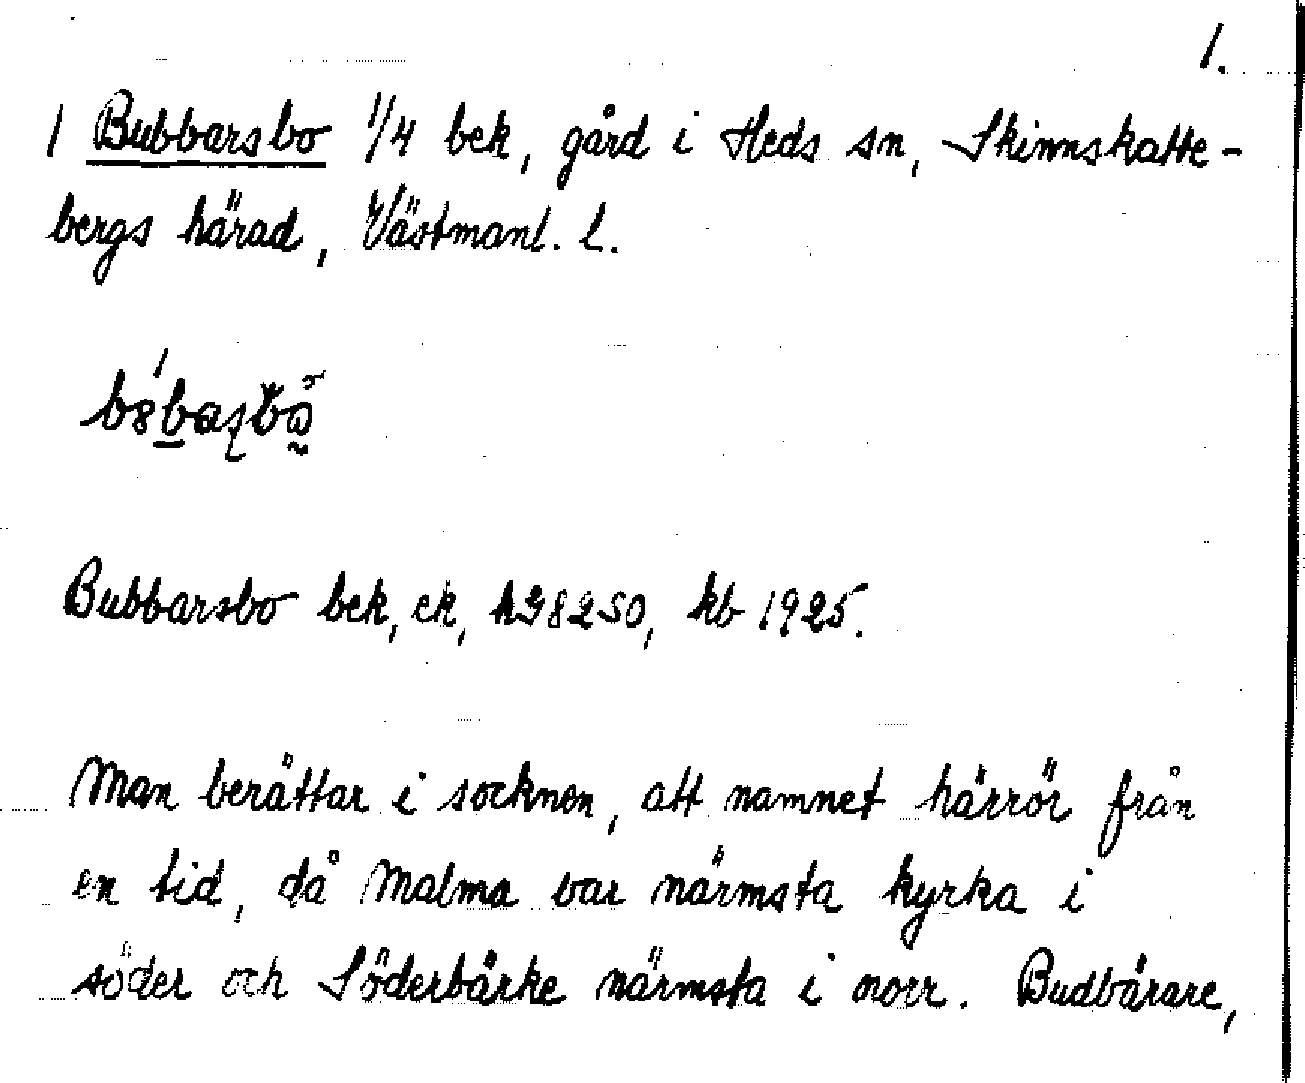 1.
1 Bubbarsbo 1/4 bek, gård i Heds sn, Skinnskatte-
bergs härad, Västmanl. l.
Bubbarsbo bek, ek, hg8250, kb 1925.
Man berättar i socknen, att namnet härrör från
en tid, då Malma var närmsta kyrka i
söder och Söderbärke närmsta i norr. Budbärare,